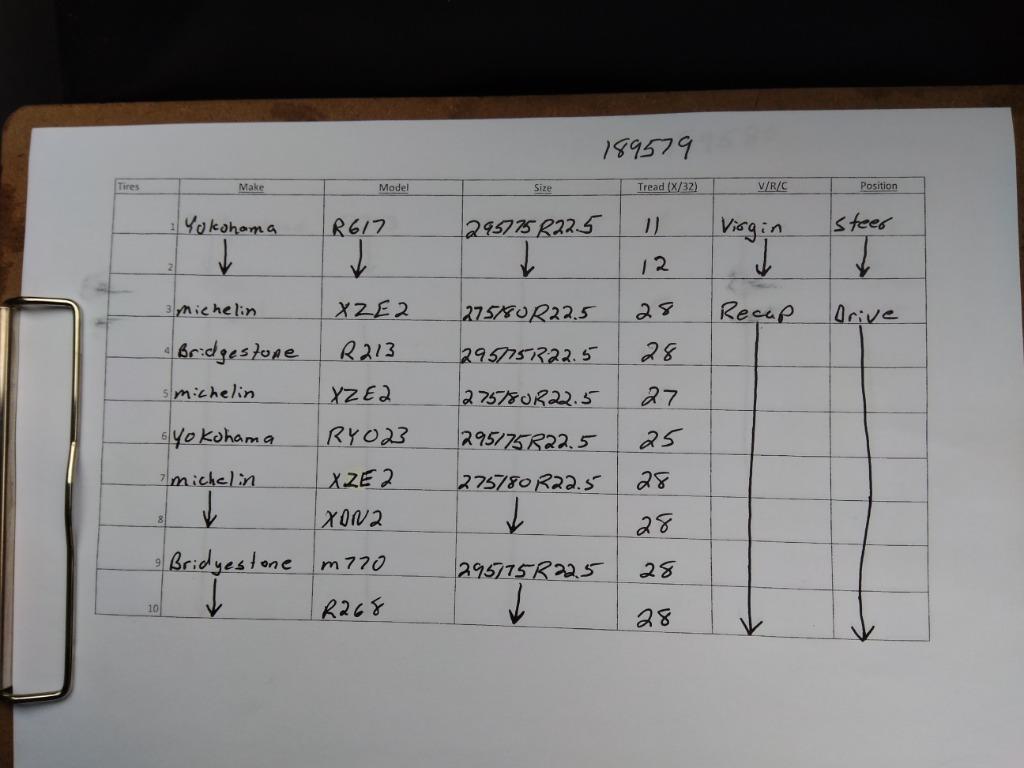 189579
Tires Make Model Size Tread (X/32) V/R/C Position
1 Yokohama R617 295/75R22.5 11 Virgin Steer
2 ↓ ↓ ↓ 12 ↓ ↓
3 michelin XZE2 275/80R22.5 28 Recap Drive
4 Bridgestone R213 295/75R22.5 28
5 michelin XZE2 275/80R22.5 27
6 Yokohama RY023 295/75R22.5 25
7 michelin XZE2 275/80R22.5 28
8 ↓ XDN2 ↓ 28
9 Bridgestone m770 295/75R22.5 28
10 ↓ R268 ↓ 28 ↓ ↓